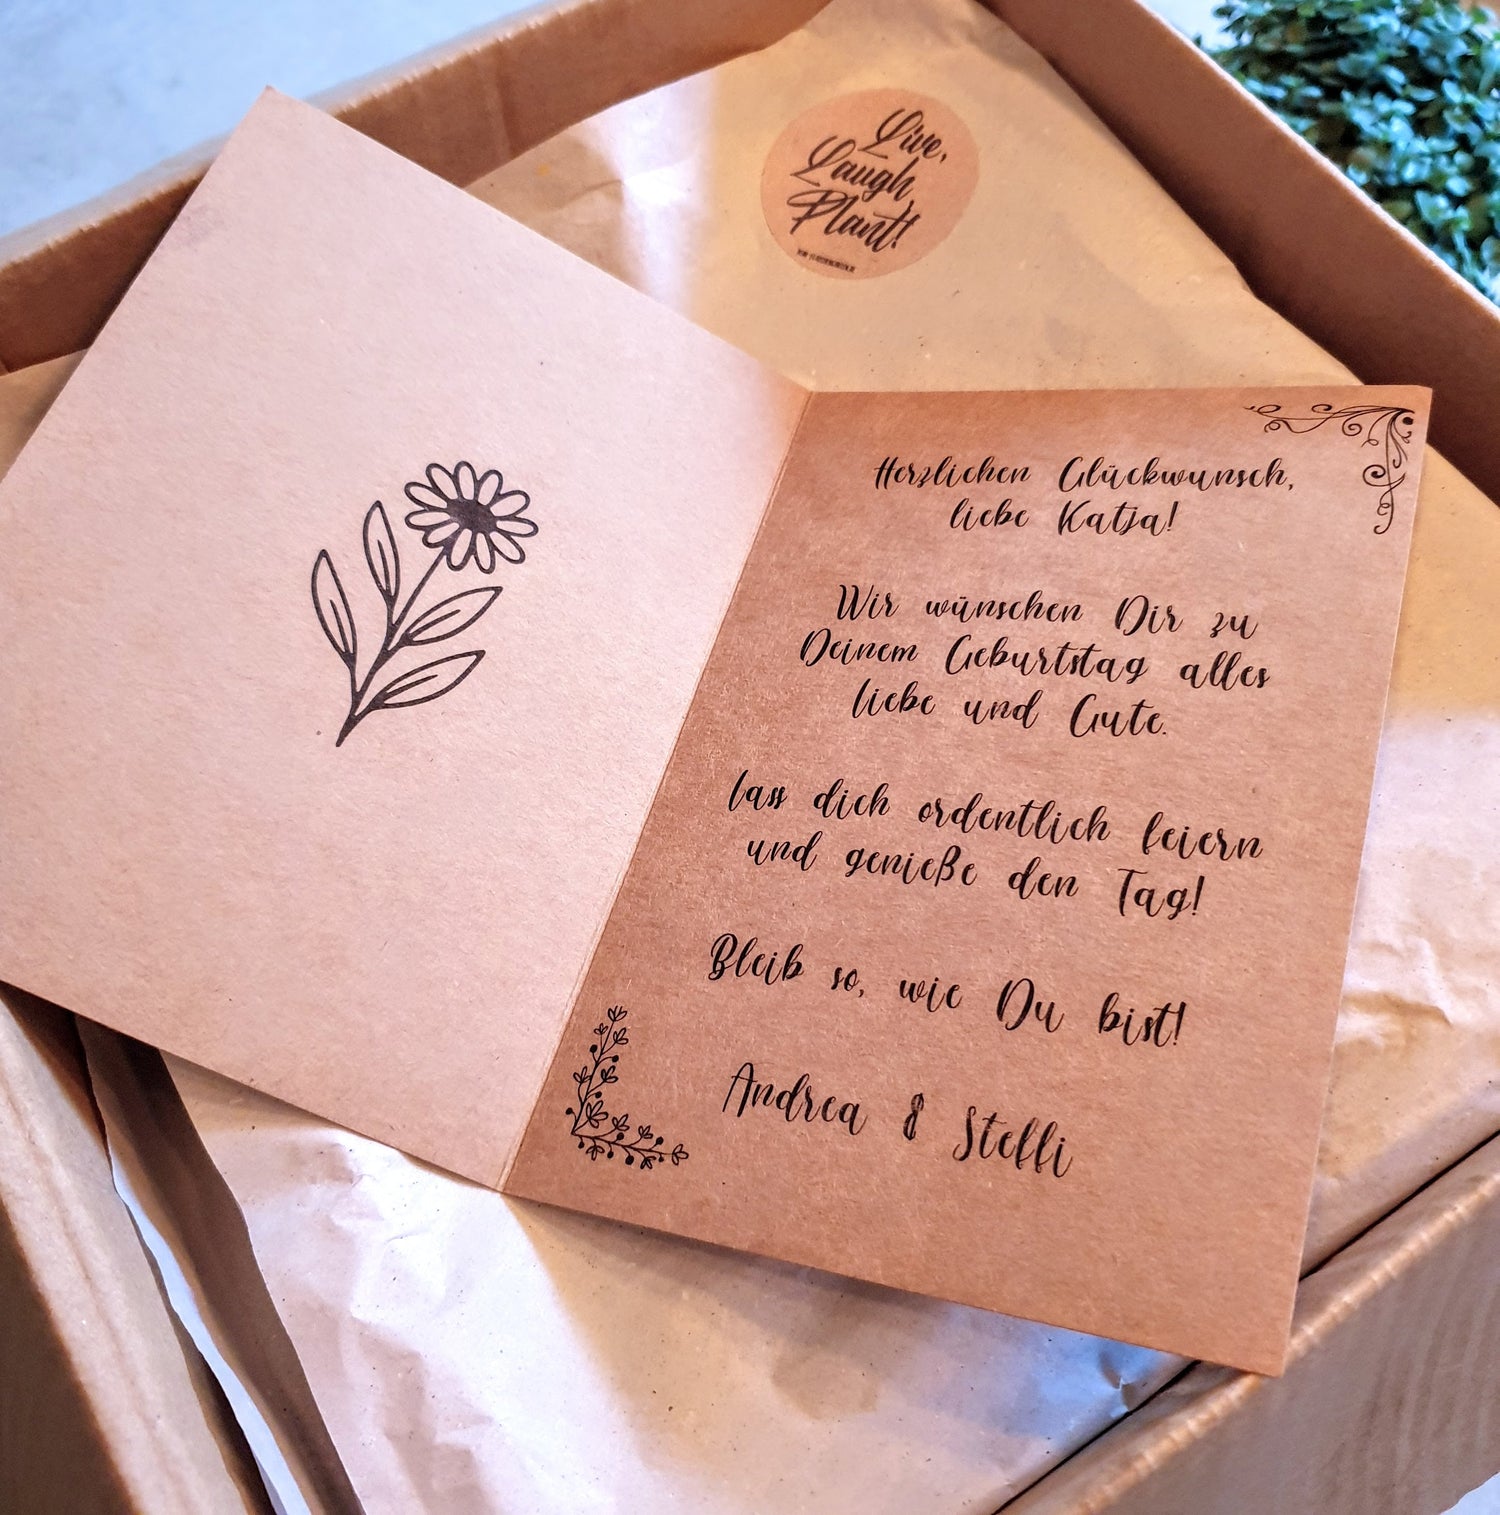 Live,
Laugh,
Plant!
Herzlichen Glückwunsch,
liebe Katja!
Wir wünschen Dir zu
Deinem Geburtstag alles
liebe und Gute.
lass dich ordentlich feiern
und genieße den Tag!
Bleib so, wie Du bist!
Andrea & Steffi